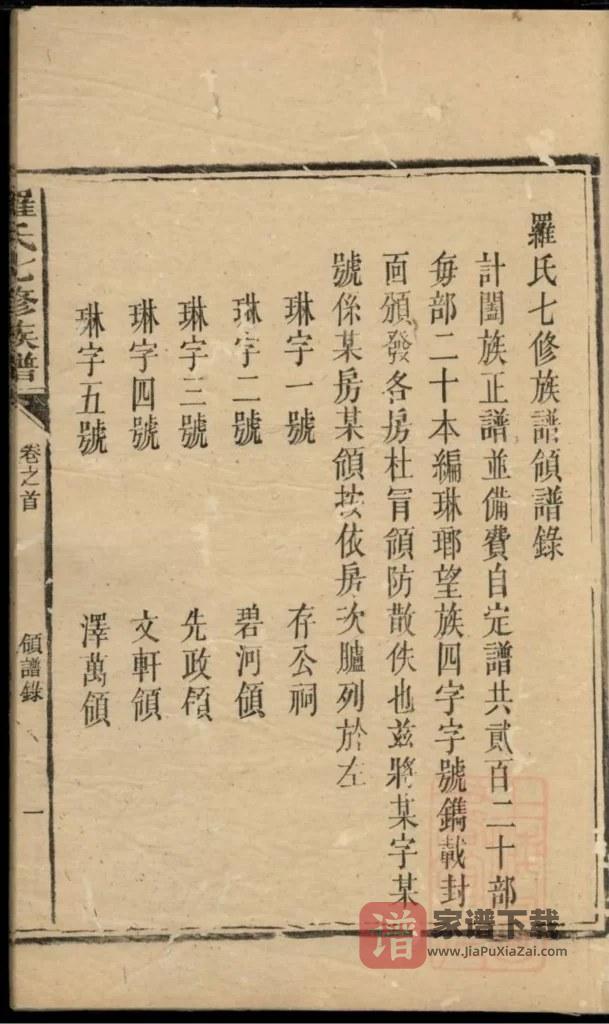 羅氏七修族譜領譜錄
計闔族正譜並備費自定譜共貳百二十部
每部二十本編琳瑯望族四字字號鐫載封
面頒發各房杜冒領防散佚也茲將某字某
號係某房某領按依房次臚列於左
琳字一號 存公祠
琳字二號 碧河領
琳字三號 先政領
琳字四號 文軒領
琳字五號 澤萬領
羅氏七修族譜 卷之首 領譜錄 一
谱 家谱下载
www.JiaPuXiaZai.com